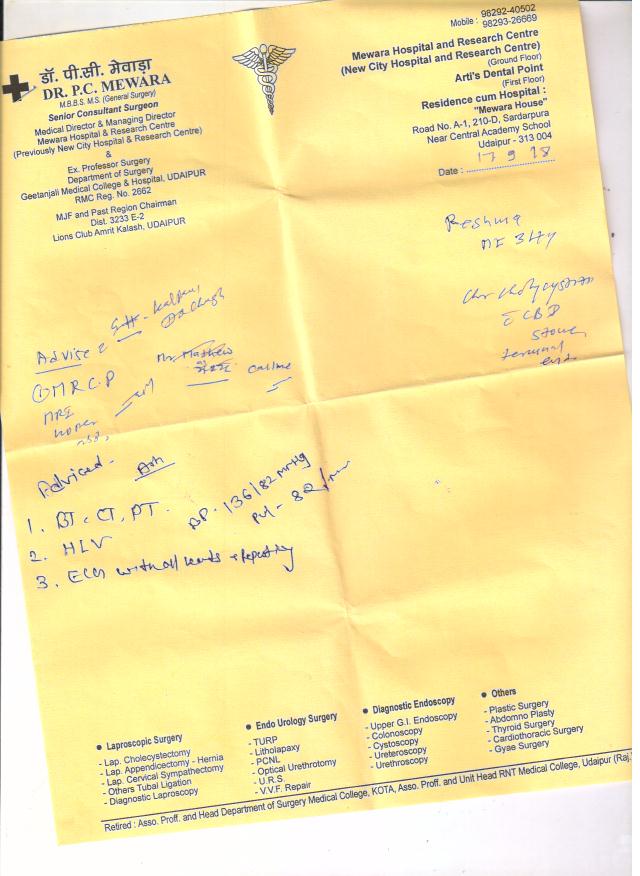 Mobile : 98292-40502
98293-26669
डॉ. पी.सी. मेवाड़ा
DR. P.C. MEWARA
M.B.B.S. M.S. (General Surgery)
Senior Consultant Surgeon
Medical Director & Managing Director
Mewara Hospital & Research Centre
(Previously New City Hospital & Research Centre)
&
Ex. Professor Surgery
Department of Surgery
Geetanjali Medical College & Hospital, UDAIPUR
RMC Reg. No. 2662
MJF and Past Region Chairman
Dist. 3233 E-2
Lions Club Amrit Kalash, UDAIPUR
Mewara Hospital and Research Centre
(New City Hospital and Research Centre)
(Ground Floor)
Arti's Dental Point
(First Floor)
Residence cum Hospital :
"Mewara House"
Road No. A-1, 210-D, Sardarpura
Near Central Academy School
Udaipur - 313 004
Date : 17 9 18
Reshma
CBD
stone
terminal
Advise
① MRCP
MRI
Mr. Mathew
online
Adviced -
1. BT, CT, PT.
2. HIV
3. ECG with all leads & reporting
BP - 136/82 mmHg
Pul - 82/min
Laproscopic Surgery
- Lap. Cholecystectomy
- Lap. Appendicectomy - Hernia
- Lap. Cervical Sympathectomy
- Others Tubal Ligation
- Diagnostic Laproscopy
Endo Urology Surgery
- TURP
- Litholapaxy
- PCNL
- Optical Urethrotomy
- U.R.S.
- V.V.F. Repair
Diagnostic Endoscopy
- Upper G.I. Endoscopy
- Colonoscopy
- Cystoscopy
- Ureteroscopy
- Urethroscopy
Others
- Plastic Surgery
- Abdomno Plasty
- Thyroid Surgery
- Cardiothoracic Surgery
- Gyae Surgery
Retired : Asso. Proff. and Head Department of Surgery Medical College, KOTA, Asso. Proff. and Unit Head RNT Medical College, Udaipur (Raj.